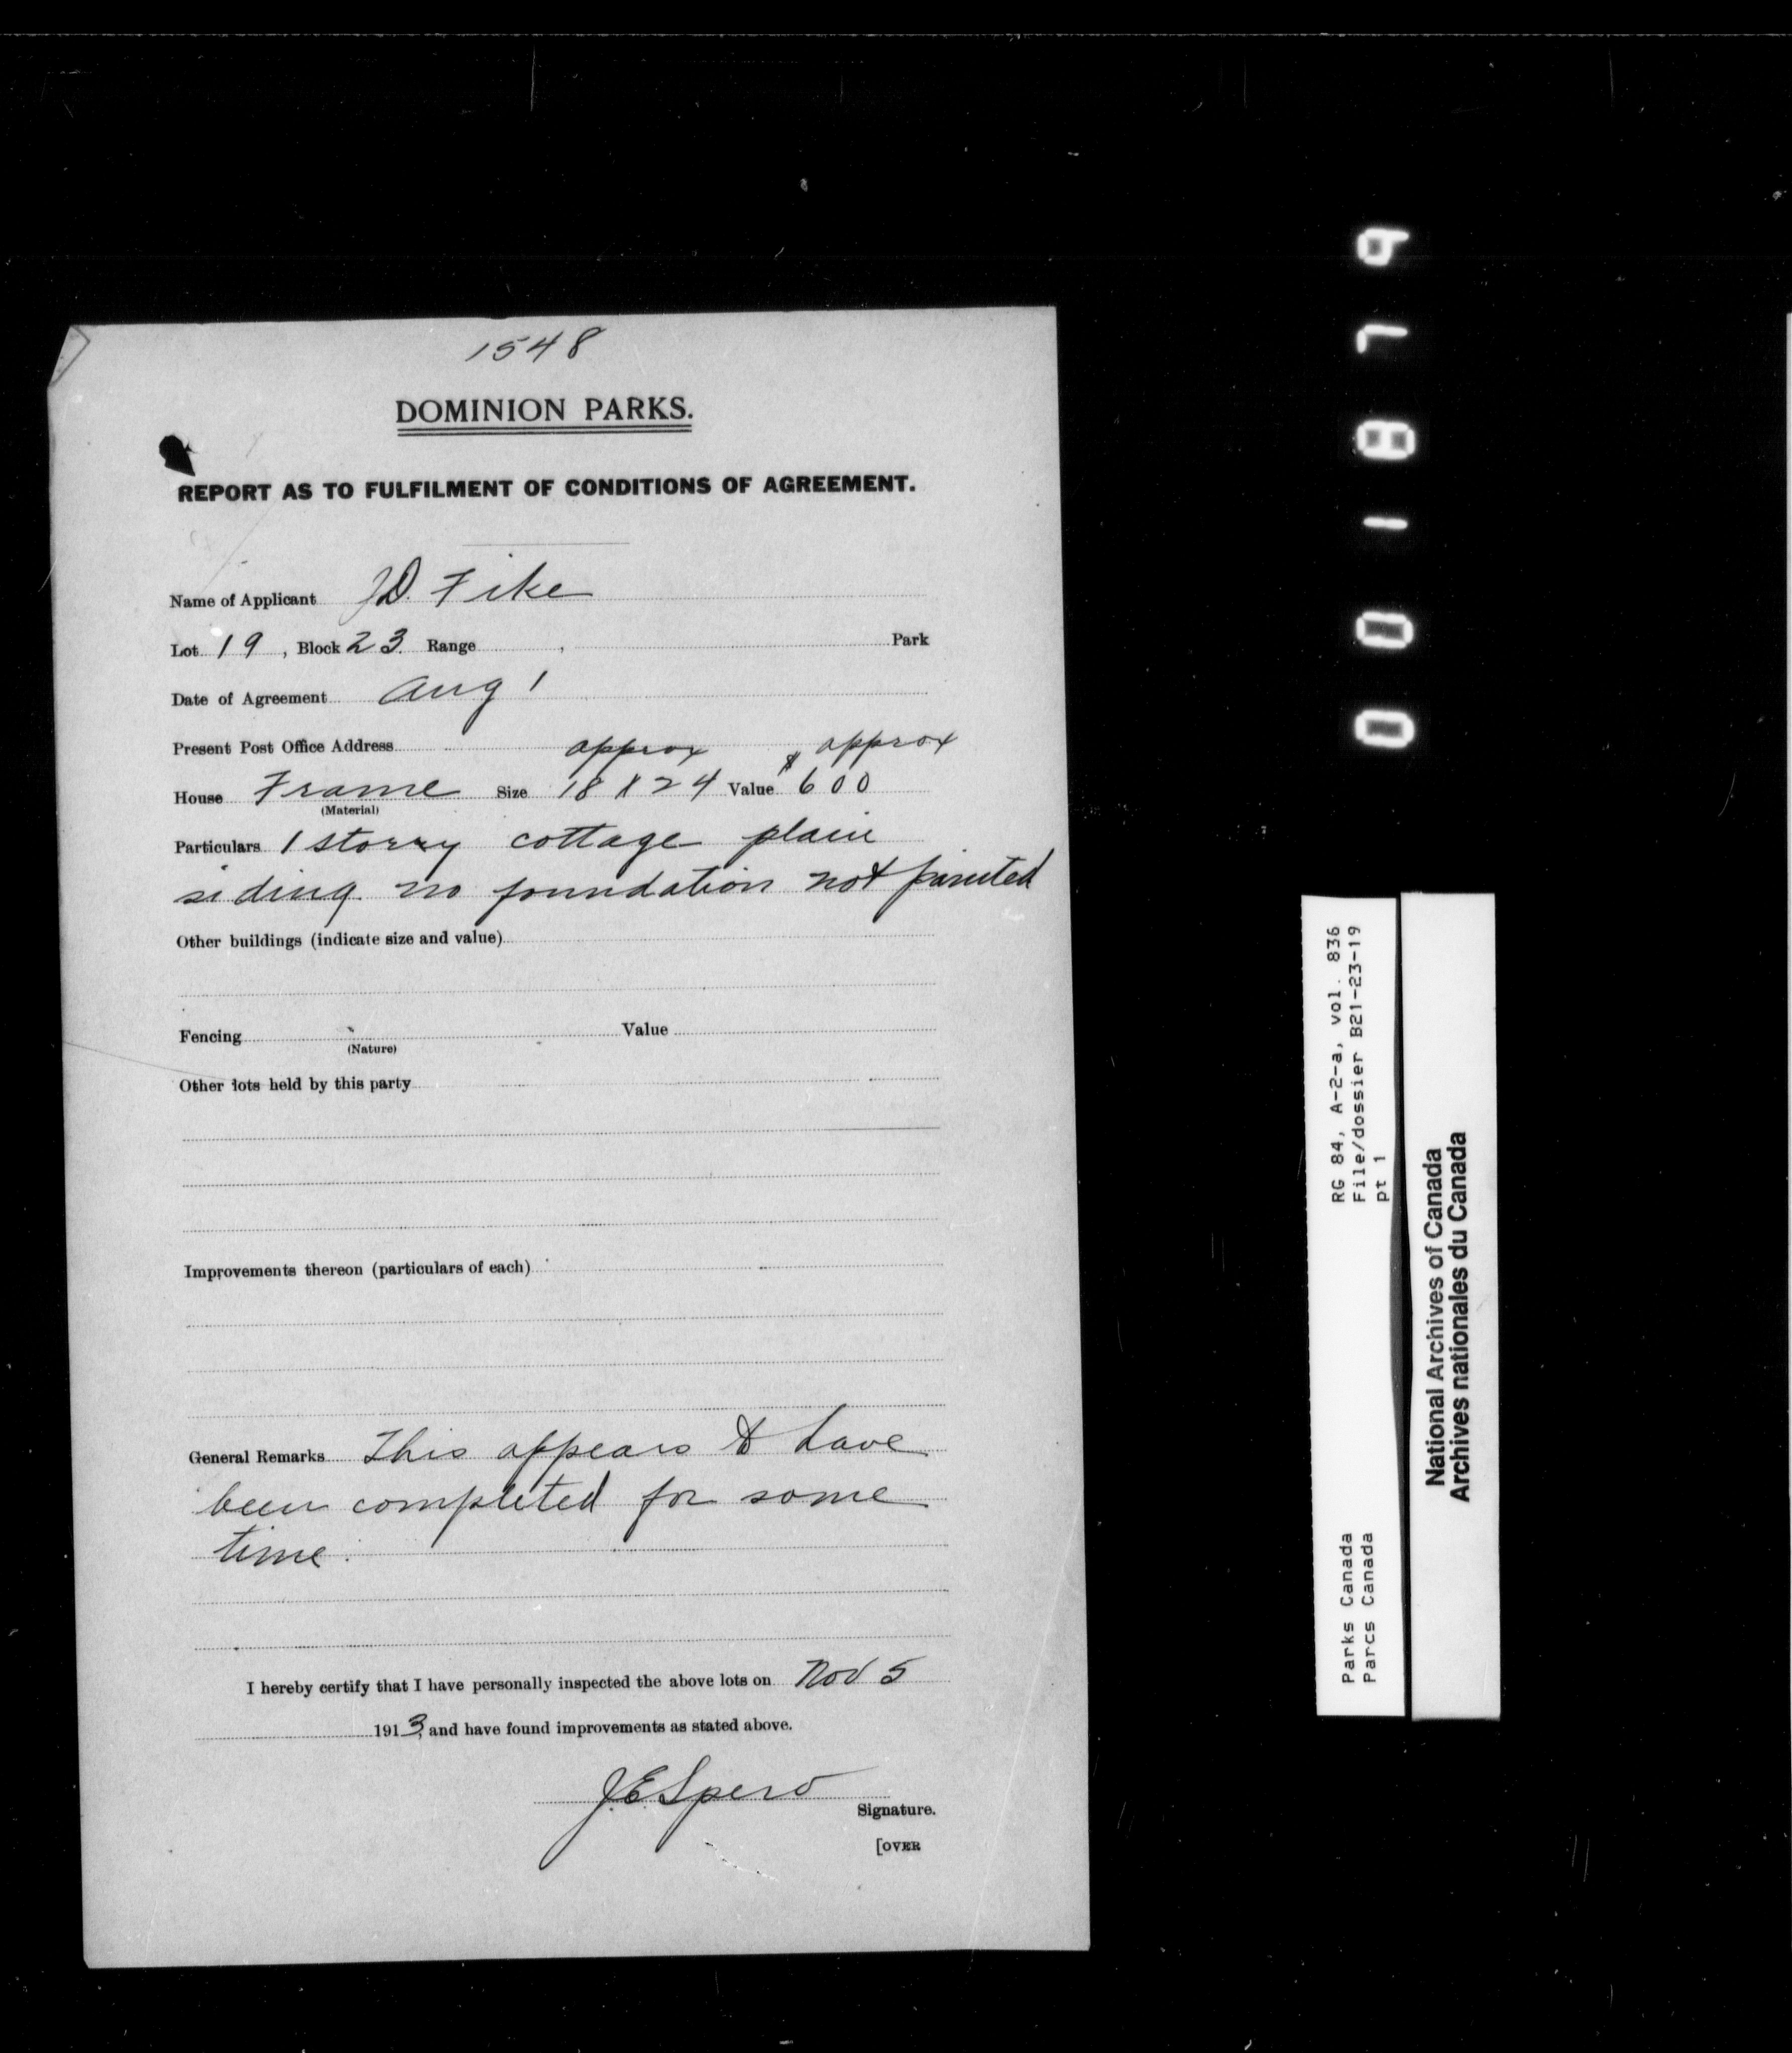 1548
DOMINION PARKS.
REPORT AS TO FULFILMENT OF CONDITIONS OF AGREEMENT.
Name of Applicant J.D. Fike
Lot 19, Block 23. Range , Park
Date of Agreement Aug 1
Present Post Office Address
approx $ approx
House Frame Size 18 x 24 Value 600
(Material)
Particulars 1 storry cottage plain
siding no foundation not painted
Other buildings (indicate size and value)
Fencing Value
(Nature)
Other lots held by this party
Improvements thereon (particulars of each)
General Remarks This appears to have
been completed for some
time.
I hereby certify that I have personally inspected the above lots on Nov 5
1913, and have found improvements as stated above.
J.E. Spero
Signature.
[OVER
001879
RG 84, A-2-a, vol. 836
File/dossier B21-23-19
pt 1
Parks Canada
Parcs Canada
National Archives of Canada
Archives nationales du Canada